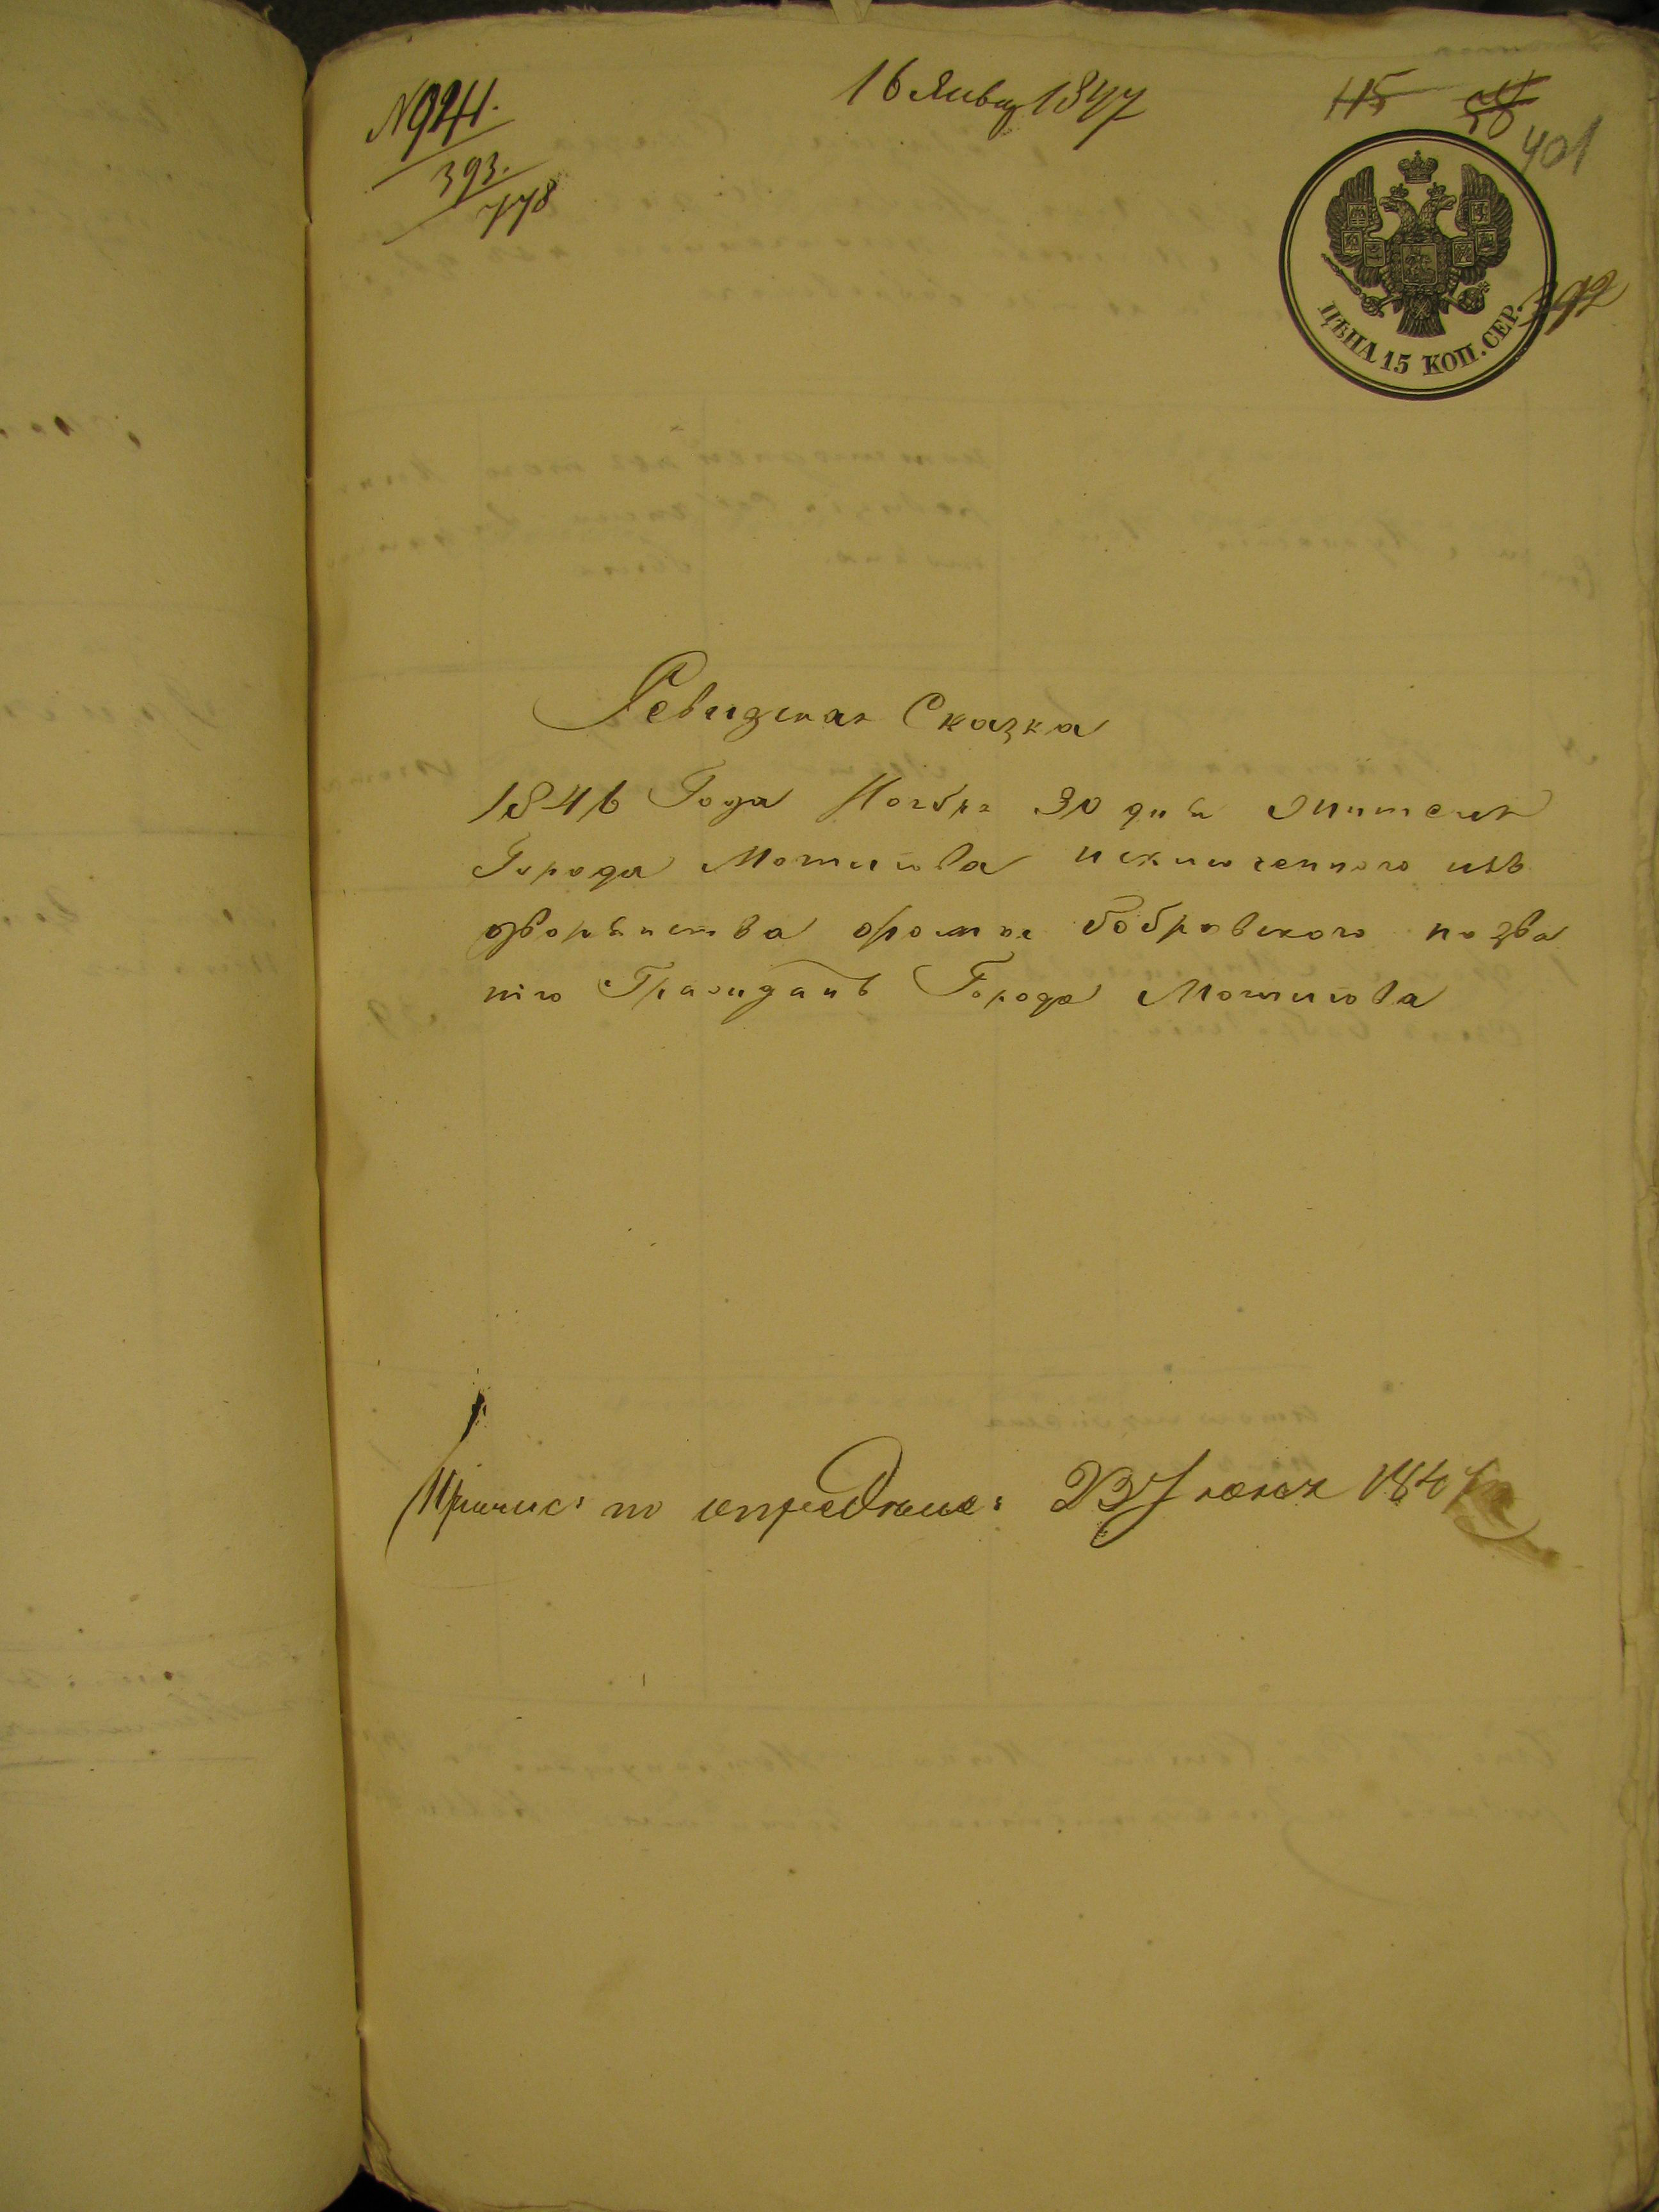 № 941.
393.
778
16 Январ 1847
115
401
392
ЦѢНА 15 КОП. СЕР.
Ревизская Сказка
1846 Года Ноября 30 дня Жителя
Города Могилева исключенного изъ
дворянства Фомы Бобровского по зва
нію Гражданъ Города Могилева
Причис: по опредѣлен: 23 Іюня 184